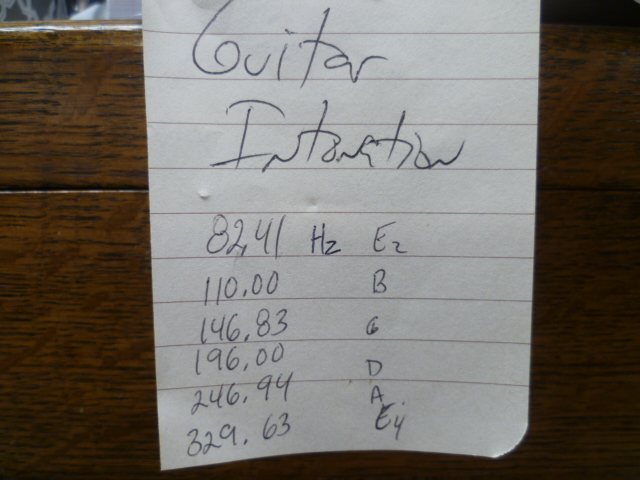 Guitar
Intonation
82,41 Hz E2
110.00 B
146.83 G
196.00 D
246.94 A
329.63 E4